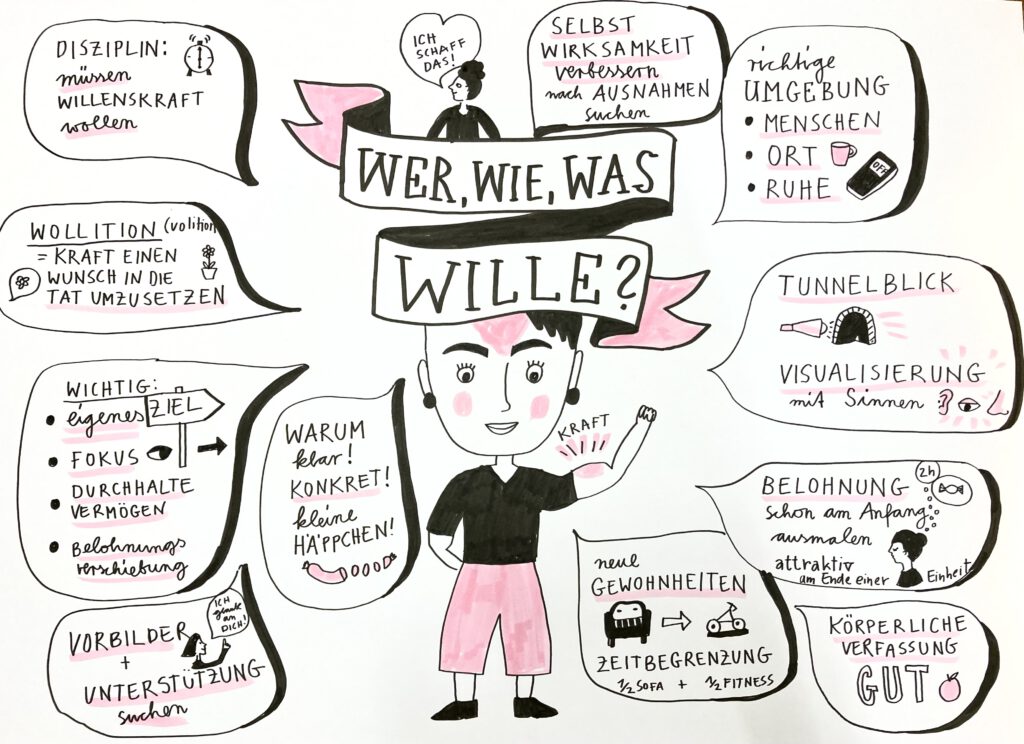 DISZIPLIN:
müssen
WILLENSKRAFT
wollen
ICH
SCHAFF
DAS!
WER, WIE, WAS
WILLE?
SELBST
WIRKSAMKEIT
verbessern
nach AUSNAHMEN
suchen
richtige
UMGEBUNG
• MENSCHEN
• ORT
• RUHE
OFF
WOLLITION (volition
= KRAFT EINEN
WUNSCH IN DIE
TAT UMZUSETZEN
TUNNELBLICK
VISUALISIERUNG
mit Sinnen
WICHTIG:
• eigenes ZIEL
• FOKUS
• DURCHHALTE
VERMÖGEN
• Belohnungs
verschiebung
WARUM
klar!
KONKRET!
kleine
HÄPPCHEN!
KRAFT
BELOHNUNG
schon am Anfang
ausmalen
attraktiv
am Ende einer Einheit
2h
VORBILDER
+
UNTERSTÜTZUNG
suchen
ICH
glaube
an
DICH!
neue
GEWOHNHEITEN
ZEITBEGRENZUNG
1/2 SOFA + 1/2 FITNESS
KÖRPERLICHE
VERFASSUNG
GUT